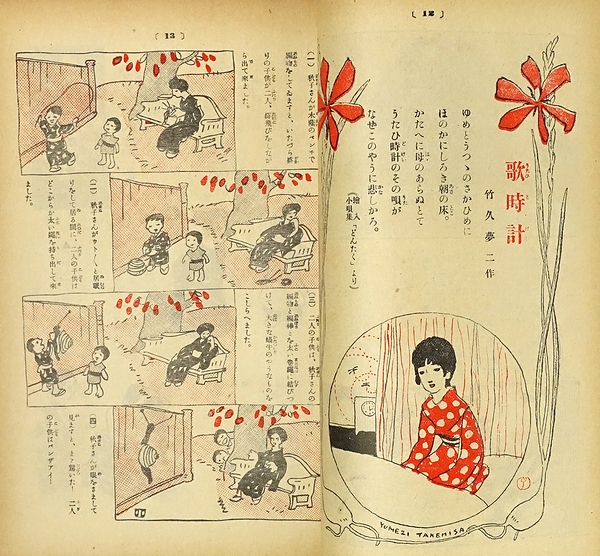 〔 12 〕
歌時計
竹久夢二作
ゆめとうつゝのさかひめに
ほのかにしろき朝の床。
かたへに母のあらぬとて
うたひ時計のその唄が
なぜこのやうに悲しかろ。
(絵入小唄集「どんたく」より)
YUMEZI TAKEHISA
〔 13 〕
(一) 秋子さんが木蔭のベンチで
編物をしてゐますと、いたづら盛
りの子供が二人、縄飛びをしなが
ら出て來ました。
(二) 秋子さんがウト〳〵と居眠
りをして居る間に、二人の子供は
どこからか太い縄を持ち出して來
ました。
(三) 二人の子供は、秋子さんの
編物と編棒とを太い巻縄に結びつ
けて、大きな蝸牛のやうなものを
こしらへました。
(四) 秋子さんが眼をさまして
見ますと、まァ驚いた! 二人
の子供はバンザアイ!